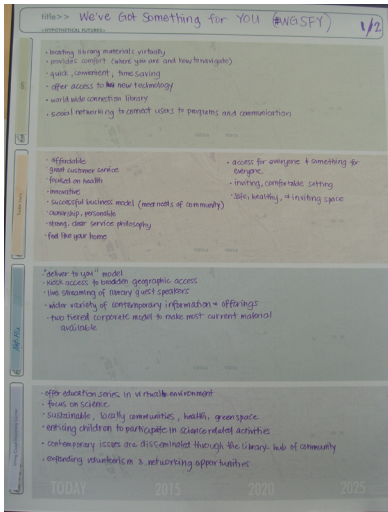 title>> We've Got Something for YOU (#WGSFY) 1/2
<HYPOTHETICAL FUTURES>
• locating library materials virtually
• provides comfort (where you are and how to navigate)
• quick, convenient, time saving
• offer access to new technology
• world wide connection library
• social networking to connect users to programs and communication
• affordable
• great customer service
• focused on health
• innovative
• successful business model (meets needs of community)
• ownership, personable
• strong, clear service philosophy
• feel like your home
• access for everyone & something for
everyone.
• inviting, comfortable setting
• safe, healthy, & inviting space
"deliver to you" model
• kiosk access to broaden geographic access
• live streaming of library guest speakers
• wider variety of contemporary information & offerings
• two tiered corporate model to make most current material
available
• offer education series in virtual environment
• focus on science
• sustainable, locally communities, health, green space
• enticing children to participate in science related activities
• contemporary issues are disseminated through the library - hub of community
• expanding volunteerism & networking opportunities
TODAY 2015 2020 2025